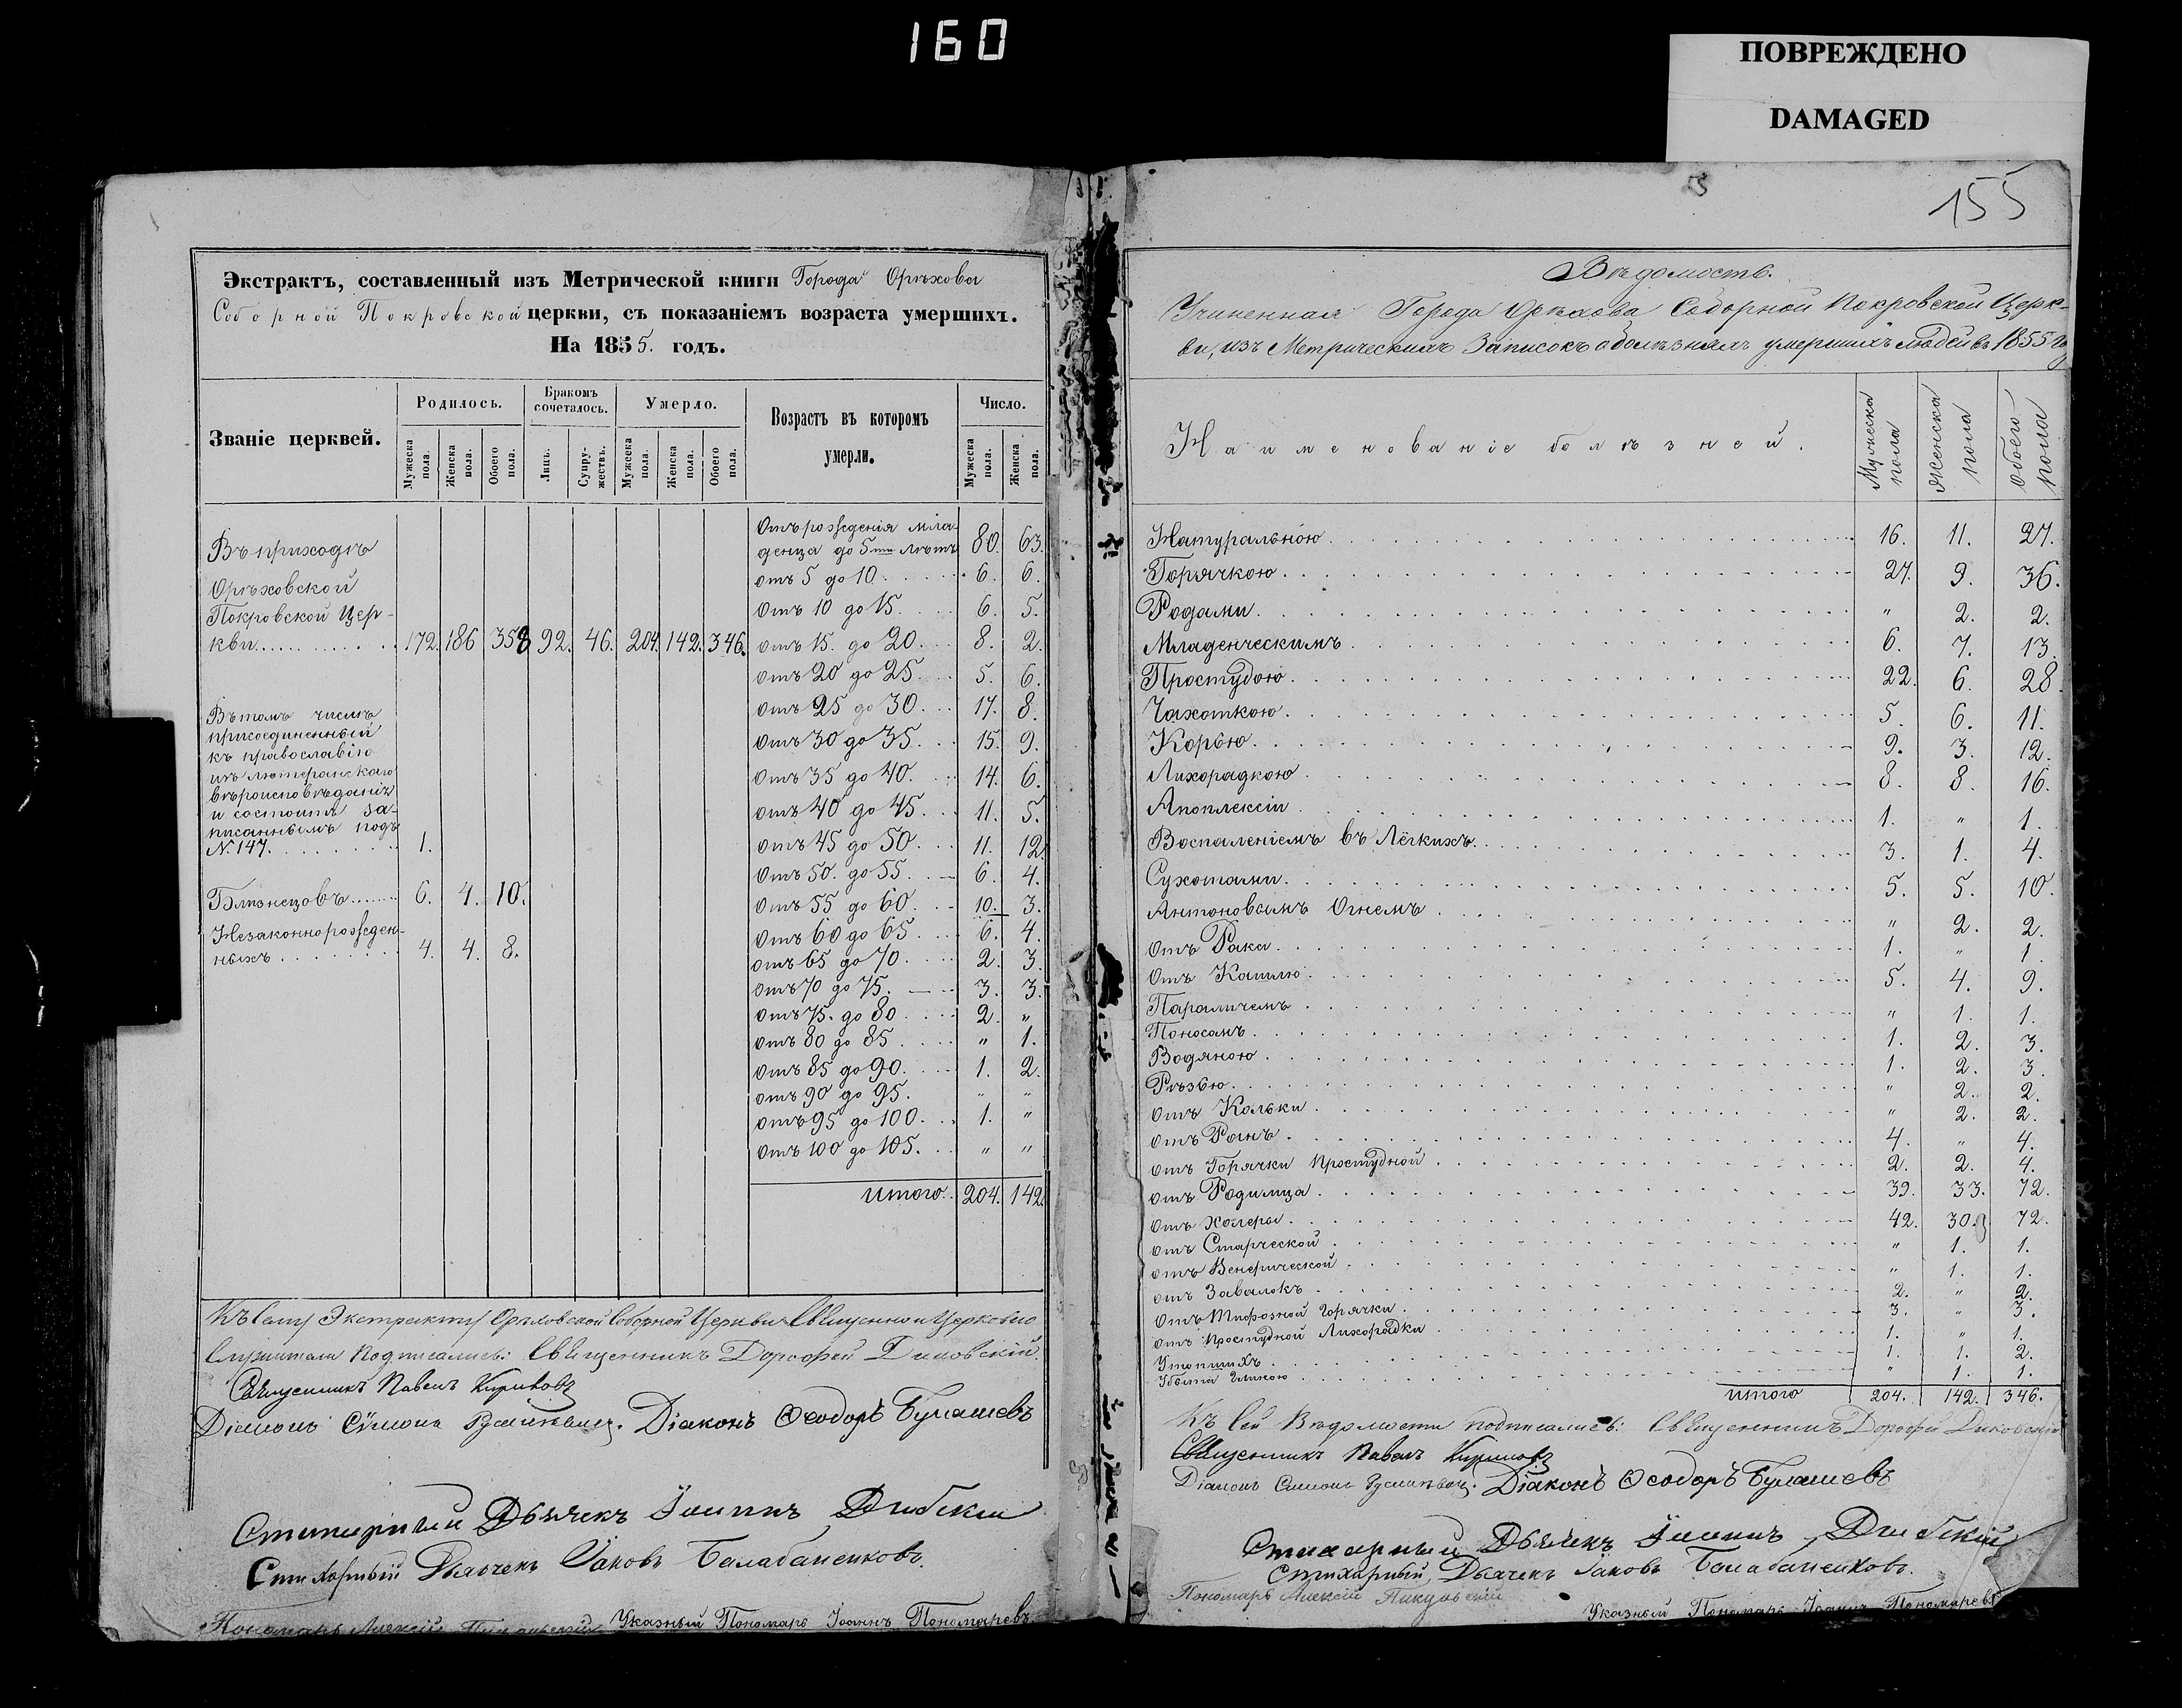 160
ПОВРЕЖДЕНО
DAMAGED
155
Экстрактъ, составленный изъ Метрической книги Города Орѣхова
Соборной Покровской церкви, съ показаніемъ возраста умершихъ.
На 1855. годъ.
Званіе церквей.
Родилось.
Бракомъ сочеталось.
Умерло.
Возрастъ въ которомъ умерли.
Число.
Мужеска пола.
Женска пола.
Обоего пола.
Лицъ.
Супру-жествъ.
Мужеска пола.
Женска пола.
Обоего пола.
Мужеска пола.
Женска пола.
Въ приходѣ
Орѣховской
Покровской Цер-
кви 172. 186 358 92. 46. 204. 142. 346.
Въ томъ числѣ
присоединенный
къ православію
изъ лютеранскаго
вѣроисповѣданія
и состоитъ за-
писаннымъ подъ
№ 147. 1.
Близнецовъ 6. 4. 10.
Незаконнорожден-
ныхъ 4. 4. 8.
Отъ рожденія мла-
денца до 5ти лѣтъ 80. 63.
отъ 5 до 10 6. 6.
Отъ 10 до 15. 6. 5.
отъ 15. до 20. 8. 2.
отъ 20 до 25. 5. 6.
отъ 25 до 30. 17. 8.
отъ 30 до 35. 15. 9.
отъ 35 до 40. 14. 6.
отъ 40 до 45. 11. 5.
отъ 45 до 50. 11. 12.
отъ 50. до 55. 6. 4.
отъ 55 до 60. 10. 3.
отъ 60 до 65. 6. 4.
отъ 65 до 70. 2. 3.
отъ 70 до 75. 3. 3.
отъ 75. до 80. 2. "
отъ 80 до 85. " 1.
отъ 85 до 90. 1. 2.
отъ 90 до 95. " "
отъ 95 до 100. 1. "
отъ 100 до 105. " "
Итого. 204. 142.
Къ сему Экстракту Орѣховской Соборной Церкви Священно и Церковно
Служители Подписались: Священникъ Дорофей Диковскій.
Священникъ Павелъ
Діаконъ Симонъ Діаконъ Ѳеодоръ Булашевъ
Стихарный Дьячекъ Іоаннъ
Стихарный Дьячекъ Іаковъ Балабаненковъ.
Пономарь Алексій Пикульскій Указный Пономарь Іоаннъ Пономаревъ
Вѣдомость.
Учиненная Города Орѣхова Соборной Покровской Церк-
ви, изъ Метрическихъ Записокъ о болѣзняхъ умершихъ людей въ 1855
Наименованіе болѣзней.
Мужеска пола
Женска пола
Обоего пола
Натуральною 16. 11. 27.
Горячкою 27. 9. 36.
Родами " 2. 2.
Младенческимъ 6. 7. 13.
Простудою 22. 6. 28.
Чахоткою 5. 6. 11.
Корью 9. 3. 12.
Лихорадкою 8. 8. 16.
Апоплексіи 1. " 1.
Воспаленіемъ въ Лёгкихъ 3. 1. 4.
Сухотами 5. 5. 10.
Антоновымъ Огнемъ " 2. 2.
Отъ Рака 1. " 1.
Отъ Кашлю 5. 4. 9.
Параличемъ " 1. 1.
Поносомъ 1. 2. 3.
Водяною 1. 2. 3.
Рѣзью " 2. 2.
Отъ Кольки " 2. 2.
отъ Ранъ 4. " 4.
отъ Горячки Простудной 2. 2. 4.
отъ Родимца 39. 33. 72.
отъ Холеры 42. 30. 72.
отъ Старческой " 1. 1.
отъ Венерической " 1. 1.
отъ Завалокъ 2. " 2.
отъ Тифозной Горячки 3. " 3.
отъ Простудной Лихорадки 1. " 1.
Утопшихъ 1. 1. 2.
Убита " 1. 1.
Итого 204. 142. 346.
Къ сей Вѣдомости подписались: Священникъ Дорофей Диковскій
Священникъ Павелъ
Діаконъ Симонъ Діаконъ Ѳеодоръ Булашевъ
Стихарный Дьячекъ Іоаннъ
Стихарный Дьячекъ Іаковъ Балабаненковъ.
Пономарь Алексій Пикульскій
Указный Пономарь Іоаннъ Пономаревъ